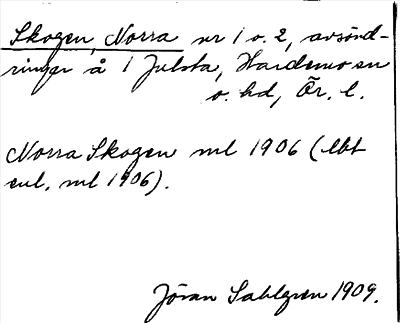 Skogen, Norra nr 1 o. 2, avsönd-
ringar å 1 Julsta, Hardemo sn
o. hd, Ör. l.
Norra Skogen ml 1906 (lbt
enl. ml 1906).
Jöran Sahlgren 1909.